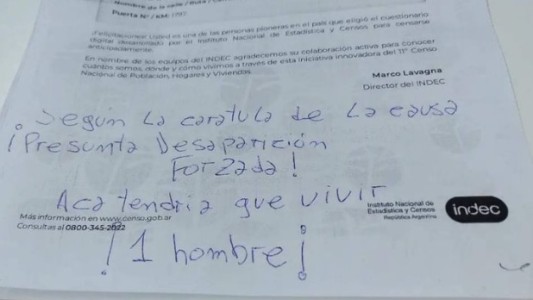 Nombre de la calle / Ruta /
Puerta N° / KM:
¡Felicitaciones! Usted es una de las personas pioneras en el país que eligió el cuestionario
digital desarrollado por el Instituto Nacional de Estadística y Censos, para censarse
anticipadamente.
En nombre de los equipos del INDEC agradecemos su colaboración activa para conocer
cuántos somos, dónde y cómo vivimos a través de esta iniciativa innovadora del 11° Censo
Nacional de Población, Hogares y Viviendas.
Marco Lavagna
Director del INDEC
Según La caratula de La causa
¡Presunta Desaparición
Forzada!
Aca tendria que vivir
Más información en www.censo.gob.ar
Consultas al 0800-345-2022
Instituto Nacional de
Estadística y Censos
República Argentina
indec
¡1 hombre!